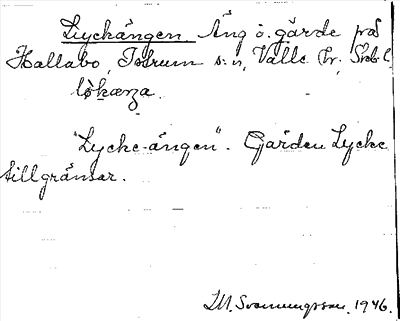 Lyckängen Äng o. gärde på
Hallabo, Istrum s:n, Valle hr, Skb l.
lø̀kæŋa.
"Lycke-ängen". Gården Lycke
tillgränsar.
I.M. Svenungsson. 1946.